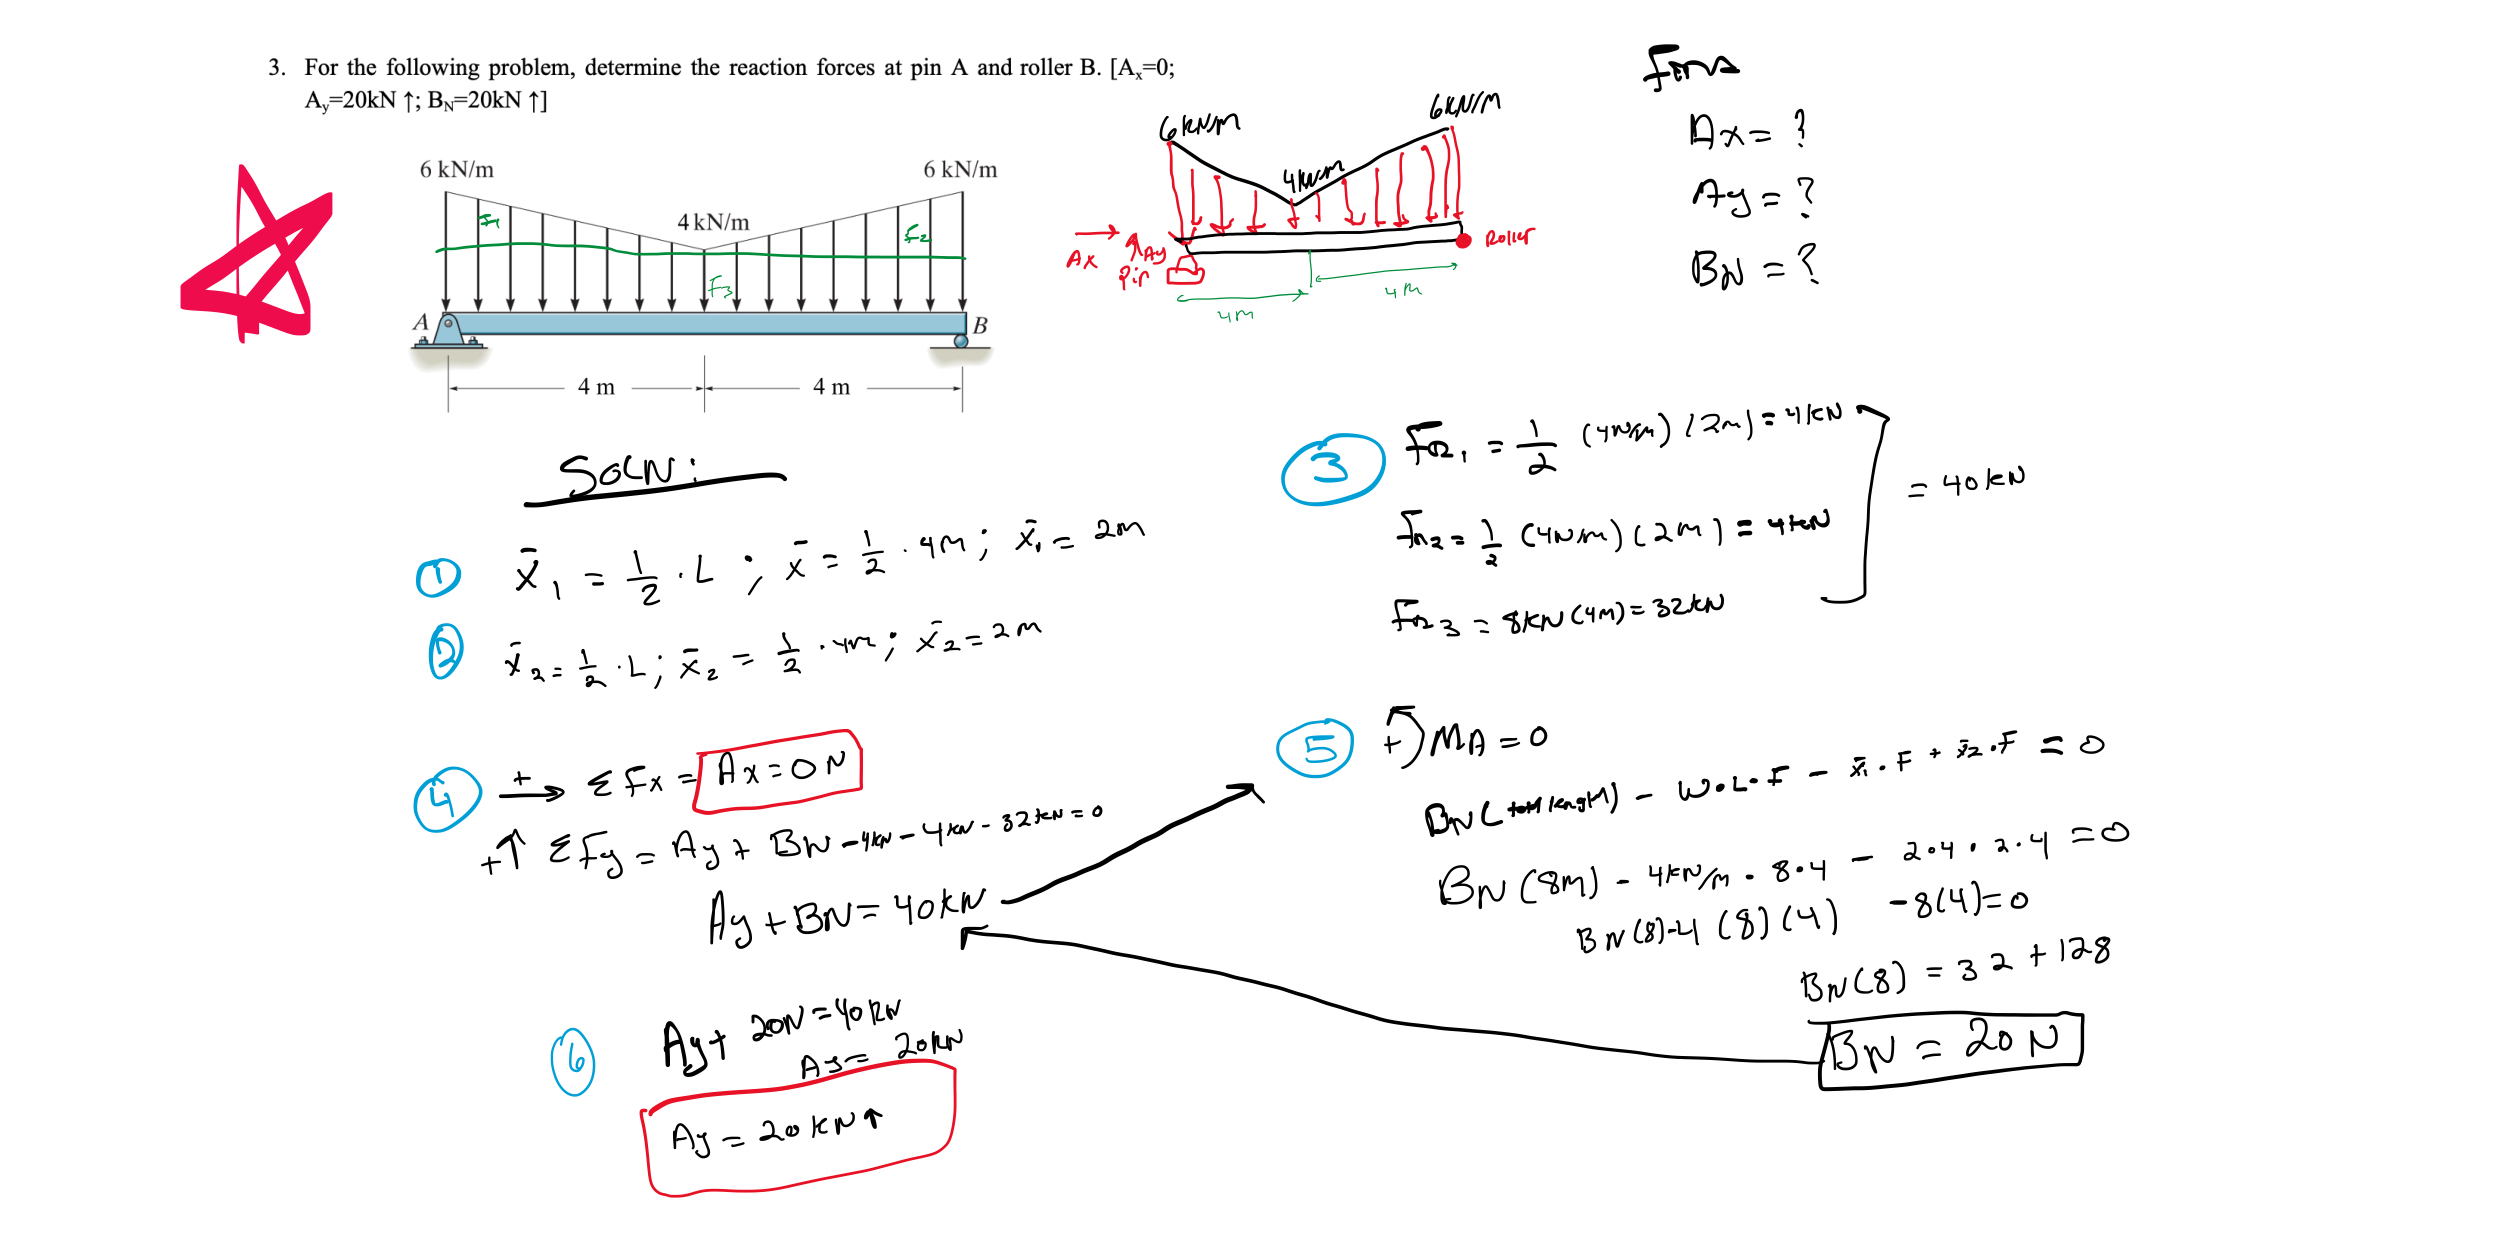 3. For the following problem, determine the reaction forces at pin A and roller B. [Aₓ=0;
A_y=20kN ↑; B_N=20kN ↑]
6 kN/m
6 kN/m
4 kN/m
F1
F2
F3
A
B
4 m
4 m
6kN/m
6kN/m
4kN/m
Ax
Ay
Pin
Roller
4m
4m
Ax = ?
Ay = ?
BN = ?
SOLN:
① x̄₁ = 1/2 · L ; x̄ = 1/2 · 4m ; x̄₁ = 2m
② x̄₂ = 1/2 · L ; x̄₂ = 1/2 · 4m ; x̄₂ = 2m
③ FR₁ = 1/2 (4N/m) (2m) = 4kN
FR₂ = 1/2 (4N/m) (2m) = 4kN
FR₃ = 8kN (4m) = 32kN
= 40kN
④ + → ΣFx = Ax = 0N
+↑ ΣFy = Ay + BN - 4kN - 4kN - 32kN = 0
Ay + BN = 40kN
⑤ + MA = 0
BN (total length) - W·L·F - x̄₁·F + x̄₂·F = 0
BN (8m) - 4kN/m · 8·4 - 2·4·2·4 = 0
BN (8) - 4 (8) (4) - 8(4) = 0
BN (8) = 32 + 128
BN = 20N
⑥ Ay + 20N = 40kN
Ay = 20kN
Ay = 20kN ↑